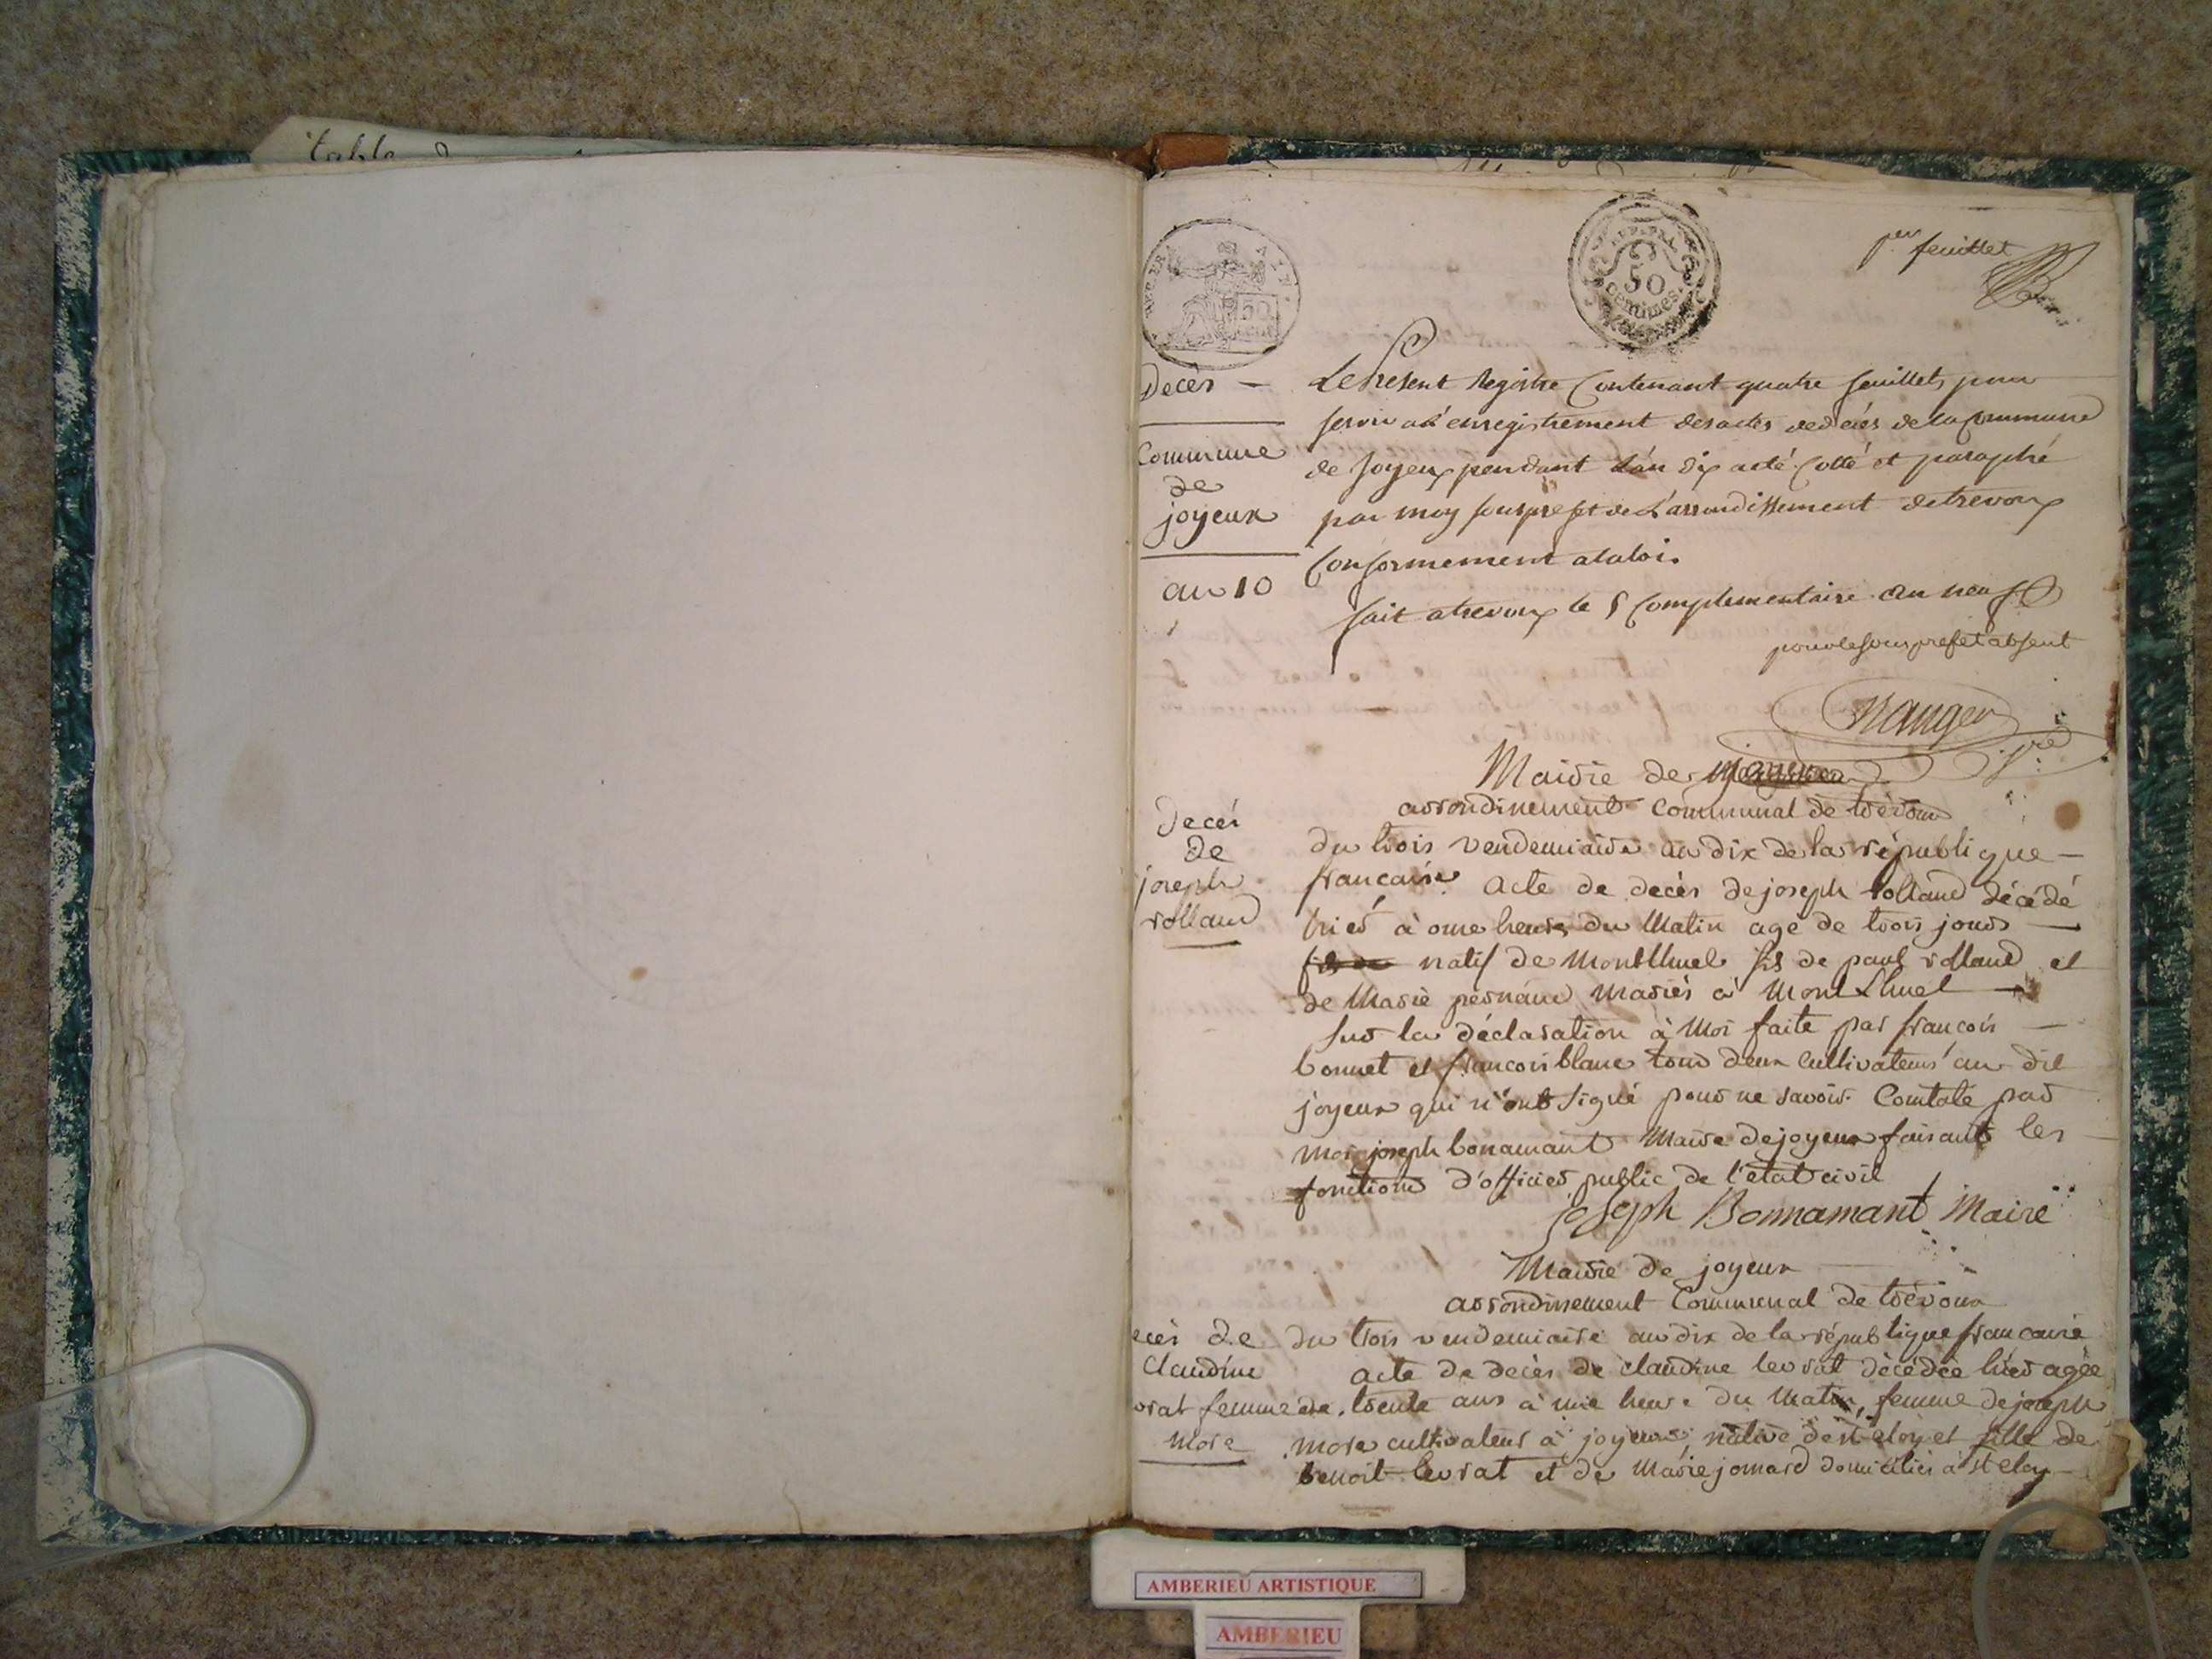 table
per feuillet
REP. FRA.
50
centimes.
50
CENT
Decès —
Commune
de
joyeux
an 10
Le Present Registre Contenant quatre feuillets pour
servir a l'enregistrement des actes de décés de la Commune
de Joyeux pendant L'an dix a été Cotté et paraphé
par moy souspréfet de L'arrondissement de trevoux
Conformement a la loi.
fait a trevoux le 5 Complementaire an neuf
pour le sous prefet absent
Mairie de joyeux
arrondissement Communal de trévoux
Decés
de
joseph
rolland
du trois vendemiaire an dix de la république —
francaise. Acte de decès de joseph rolland décédé
hier à onze heures du Matin agé de trois jours —
fils de natif de Montlhuel fils de paul rolland et
de Marie mariés à Montluel —
Sur la déclaration à Moi faite par francois —
bonnet et francois blanc tous deux cultivateurs au dit
joyeux qui n'ont signé pour ne savoir. Constaté par
Moi joseph bonamant Maire de joyeux faisant les —
fonctions d'officier public de l'état civil
joseph Bonnamant Maire
Mairie de joyeux
arrondissement Communal de trévoux
ecès de
Claudine
vrat femme de
More
du trois vendemiaire an dix de la république francaise
Acte de decès de claudine levrat décédée hier agée
de trente ans à une heure du Matin, femme de joseph
More cultivateur à joyeux, native de st eloy et fille de
benoit levrat et de Marie jomard domiciliés à st eloy —
AMBERIEU ARTISTIQUE
AMBERIEU